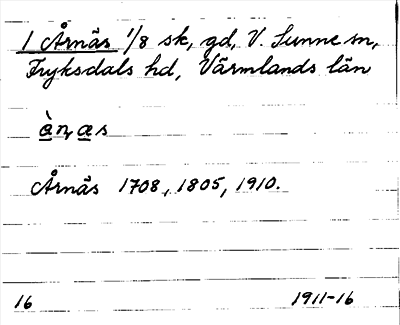 1 Årnäs 1/8 sk, gd, V. Sunne sn,
Fryksdals hd, Värmlands län
ànæs
Årnäs 1708, 1805, 1910.
16 1911-16